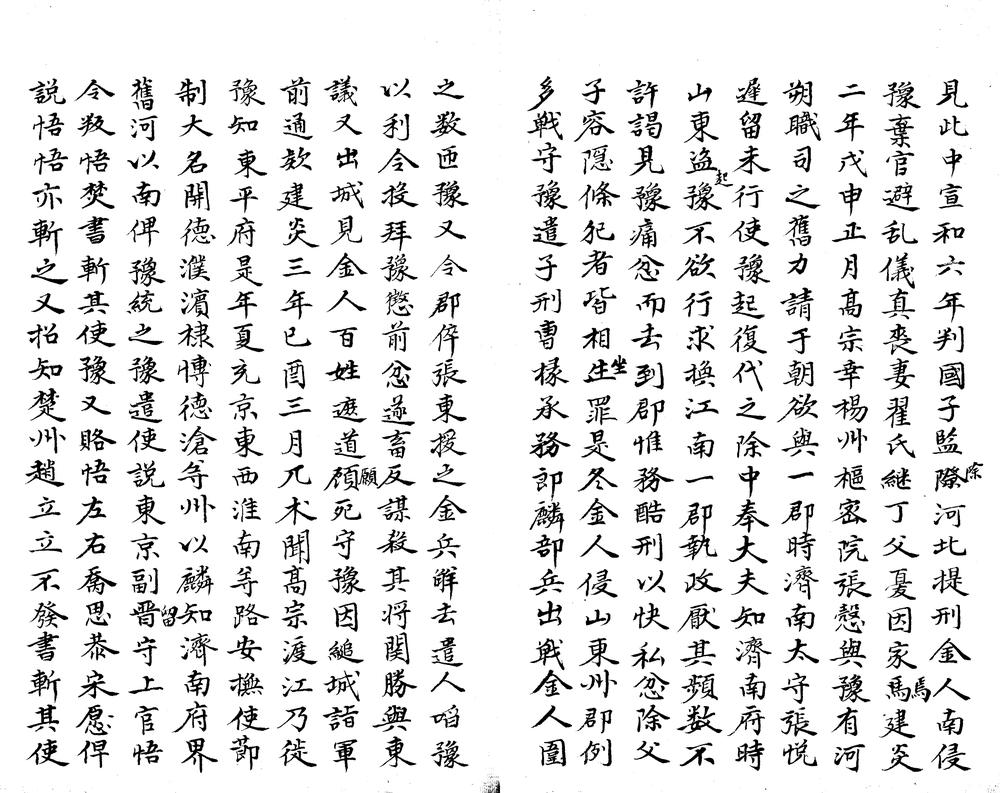 見此中宣和六年判國子監際除河北提刑金人南侵
豫棄官避乱儀真喪妻翟氏継丁父憂因家馬焉建炎
二年戊申正月高宗幸楊州樞密院張愨與豫有河
朔職司之舊力請于朝欲與一郡時濟南太守張悅
遲留未行使豫起復代之除中奉大夫知濟南府時
山東盗起豫不欲行求換江南一郡執政厭其頻数不
許謁見豫痛忿而去到郡惟務酷刑以快私忿除父
子容隱條犯者皆相生坐罪是冬金人侵山東州郡例
多戦守豫遣子刑曹掾承務郎麟部兵出戦金人圍
之数匝豫又令郡倅張東援之金兵觧去遣人啗豫
以利令投拜豫懲前忿遂畜反謀殺其将関勝與東
議又出城見金人百姓遮道頎願死守豫因縋城詣軍
前通欵建炎三年已酉三月兀术聞高宗渡江乃徙
豫知東平府是年夏充京東西淮南等路安撫使節
制大名開德濮濵棣愽德滄等州以麟知濟南府界
舊河以南俾豫統之豫遣使說東京副晋留守上官悟
令叛悟焚書斬其使豫又賂悟左右喬思恭宋愿俾
說悟悟亦斬之又招知楚州趙立立不發書斬其使